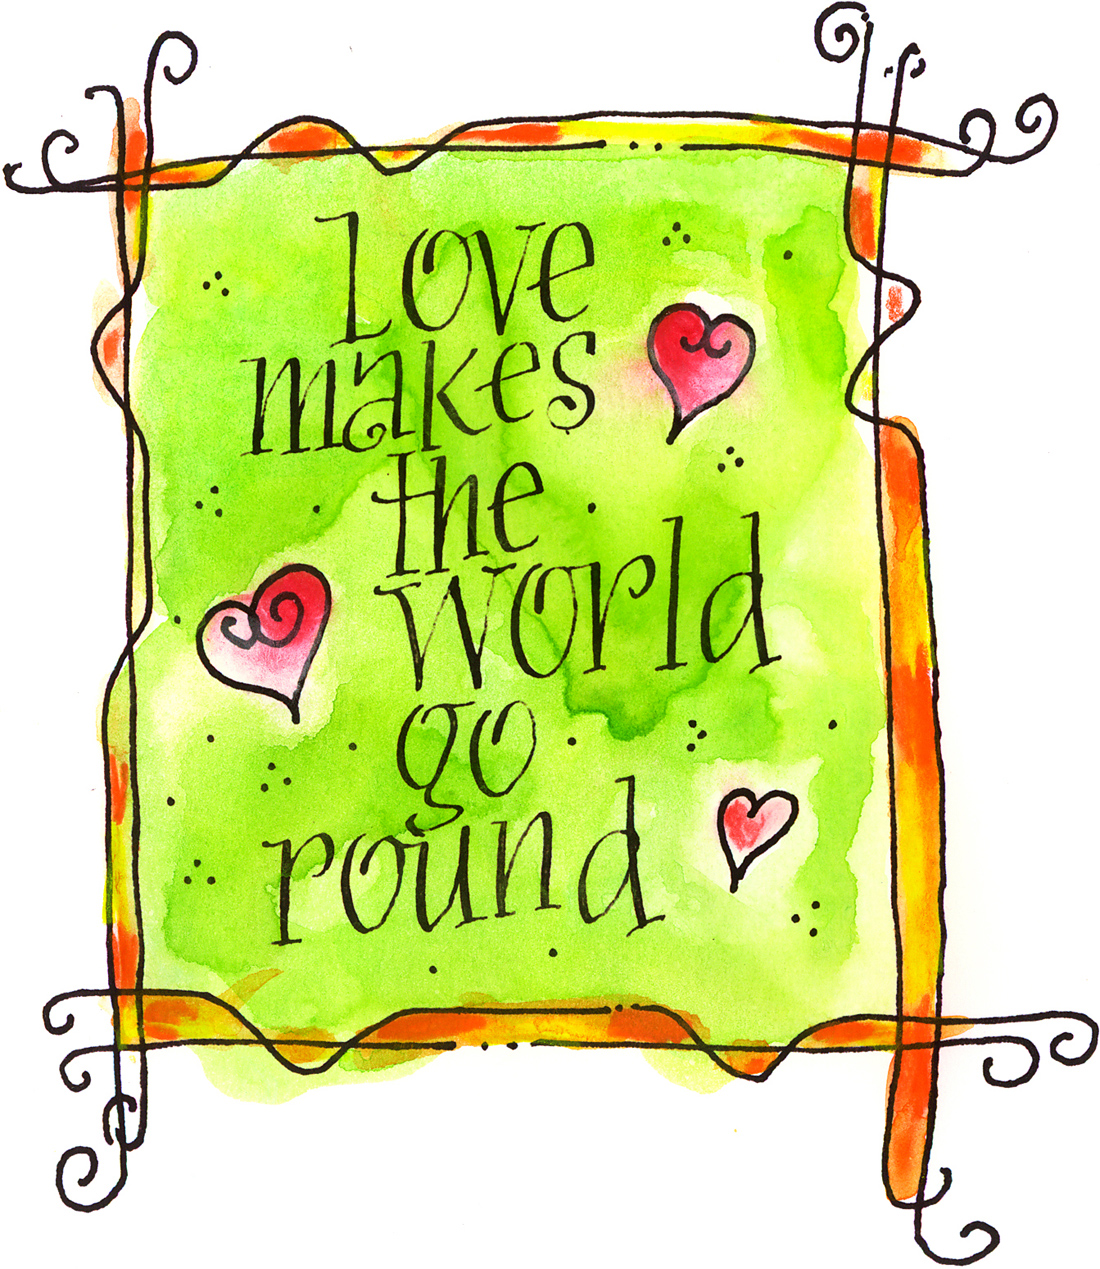 Love
makes
the
world
go
round